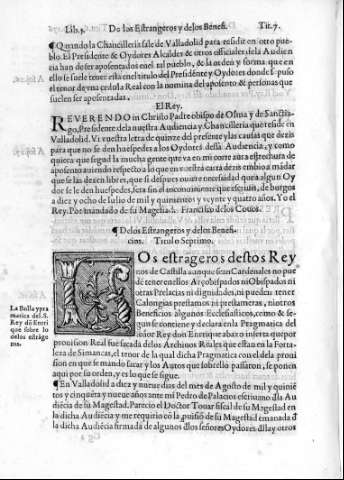 Lib.5. De los Estrangeros y delos Benefi. Tit.7.
¶ Quando la Chancilleria sale de Valladolid para residir en otro pueblo. El Presidente & Oydores Alcaldes & otros officiales dela Audien
cia han de ser aposentados en el tal pueblo, & la orden y forma que en
ello se suele tener esta en el titulo del Presidente y Oydores donde se puso
el tenor de vna cedula Real con la nomina del aposento & personas que
suelen ser aposentadas.
El Rey.
REVERENDO in Christo Padre obispo de Osma y de Sanctia-
go, Presidente dela nuestra Audiencia y Chancilleria que reside en
Valladolid. Vi vuestra letra de quinze del presente y las causas que dezis
para que no se den huespedes a los Oydores dessa Audiencia, y como
quiera que segun la mucha gente que va en mi corte aura estrechura de
aposento auiendo respecto a lo que en vuestra carta dezis embio a mãdar
que se las dexen libre, que si despues ouiere necessidad para algun Oy
dor se le den huespedes, sera sin el inconueniente que escreuis, de burgos
a diez y ocho de Iulio de mil y quinientos y veynte y quatro años. Yo el
Rey. Por mandado de su Magestad. Francisco de los Couos.
¶ Delos Estrangeros y delos Benefi-
cios. Titulo Septimo.
LOs estrãgeros destos Rey
nos de Castilla aunque sean Cardenales no pue
dẽ tener en ellos Arçobispados ni Obispados ni
otras Prelacias ni dignidades, ni pueden tener
Calongias prestamos ni prestameras, ni otros
Beneficios algunos Ecclesiasticos, como & se-
gun se contiene y declara en la Pragmatica del
señor Rey don Enrique abaxo inserta que por
prouision Real fue sacada delos Archiuos Reales que estan en la Forta
leza de Simancas, el tenor de la qual dicha Pragmatica con el dela proui
sion en que se mando sacar y los Autos que sobre ello passaron, se ponen
aqui por su orden, y es lo que se sigue.
La Bulla y pra
matica del S.
Rey dõ Enri
que sobre lo
delos estrãge
ros.
¶ En Valladolid a diez y nueue dias del mes de Agosto de mil y quiniẽ
tos y cinquẽta y nueue años ante mi Pedro de Palacios escriuano dla Au
diẽcia de su Magestad. Parecio el Doctor Touar fiscal de su Magestad en
la dicha Audiẽcia y me requirio cõ la prouisiõ de su Magestad emanada d
la dicha Audiẽcia firmada de algunos dlos señores Oydores dlla y otros